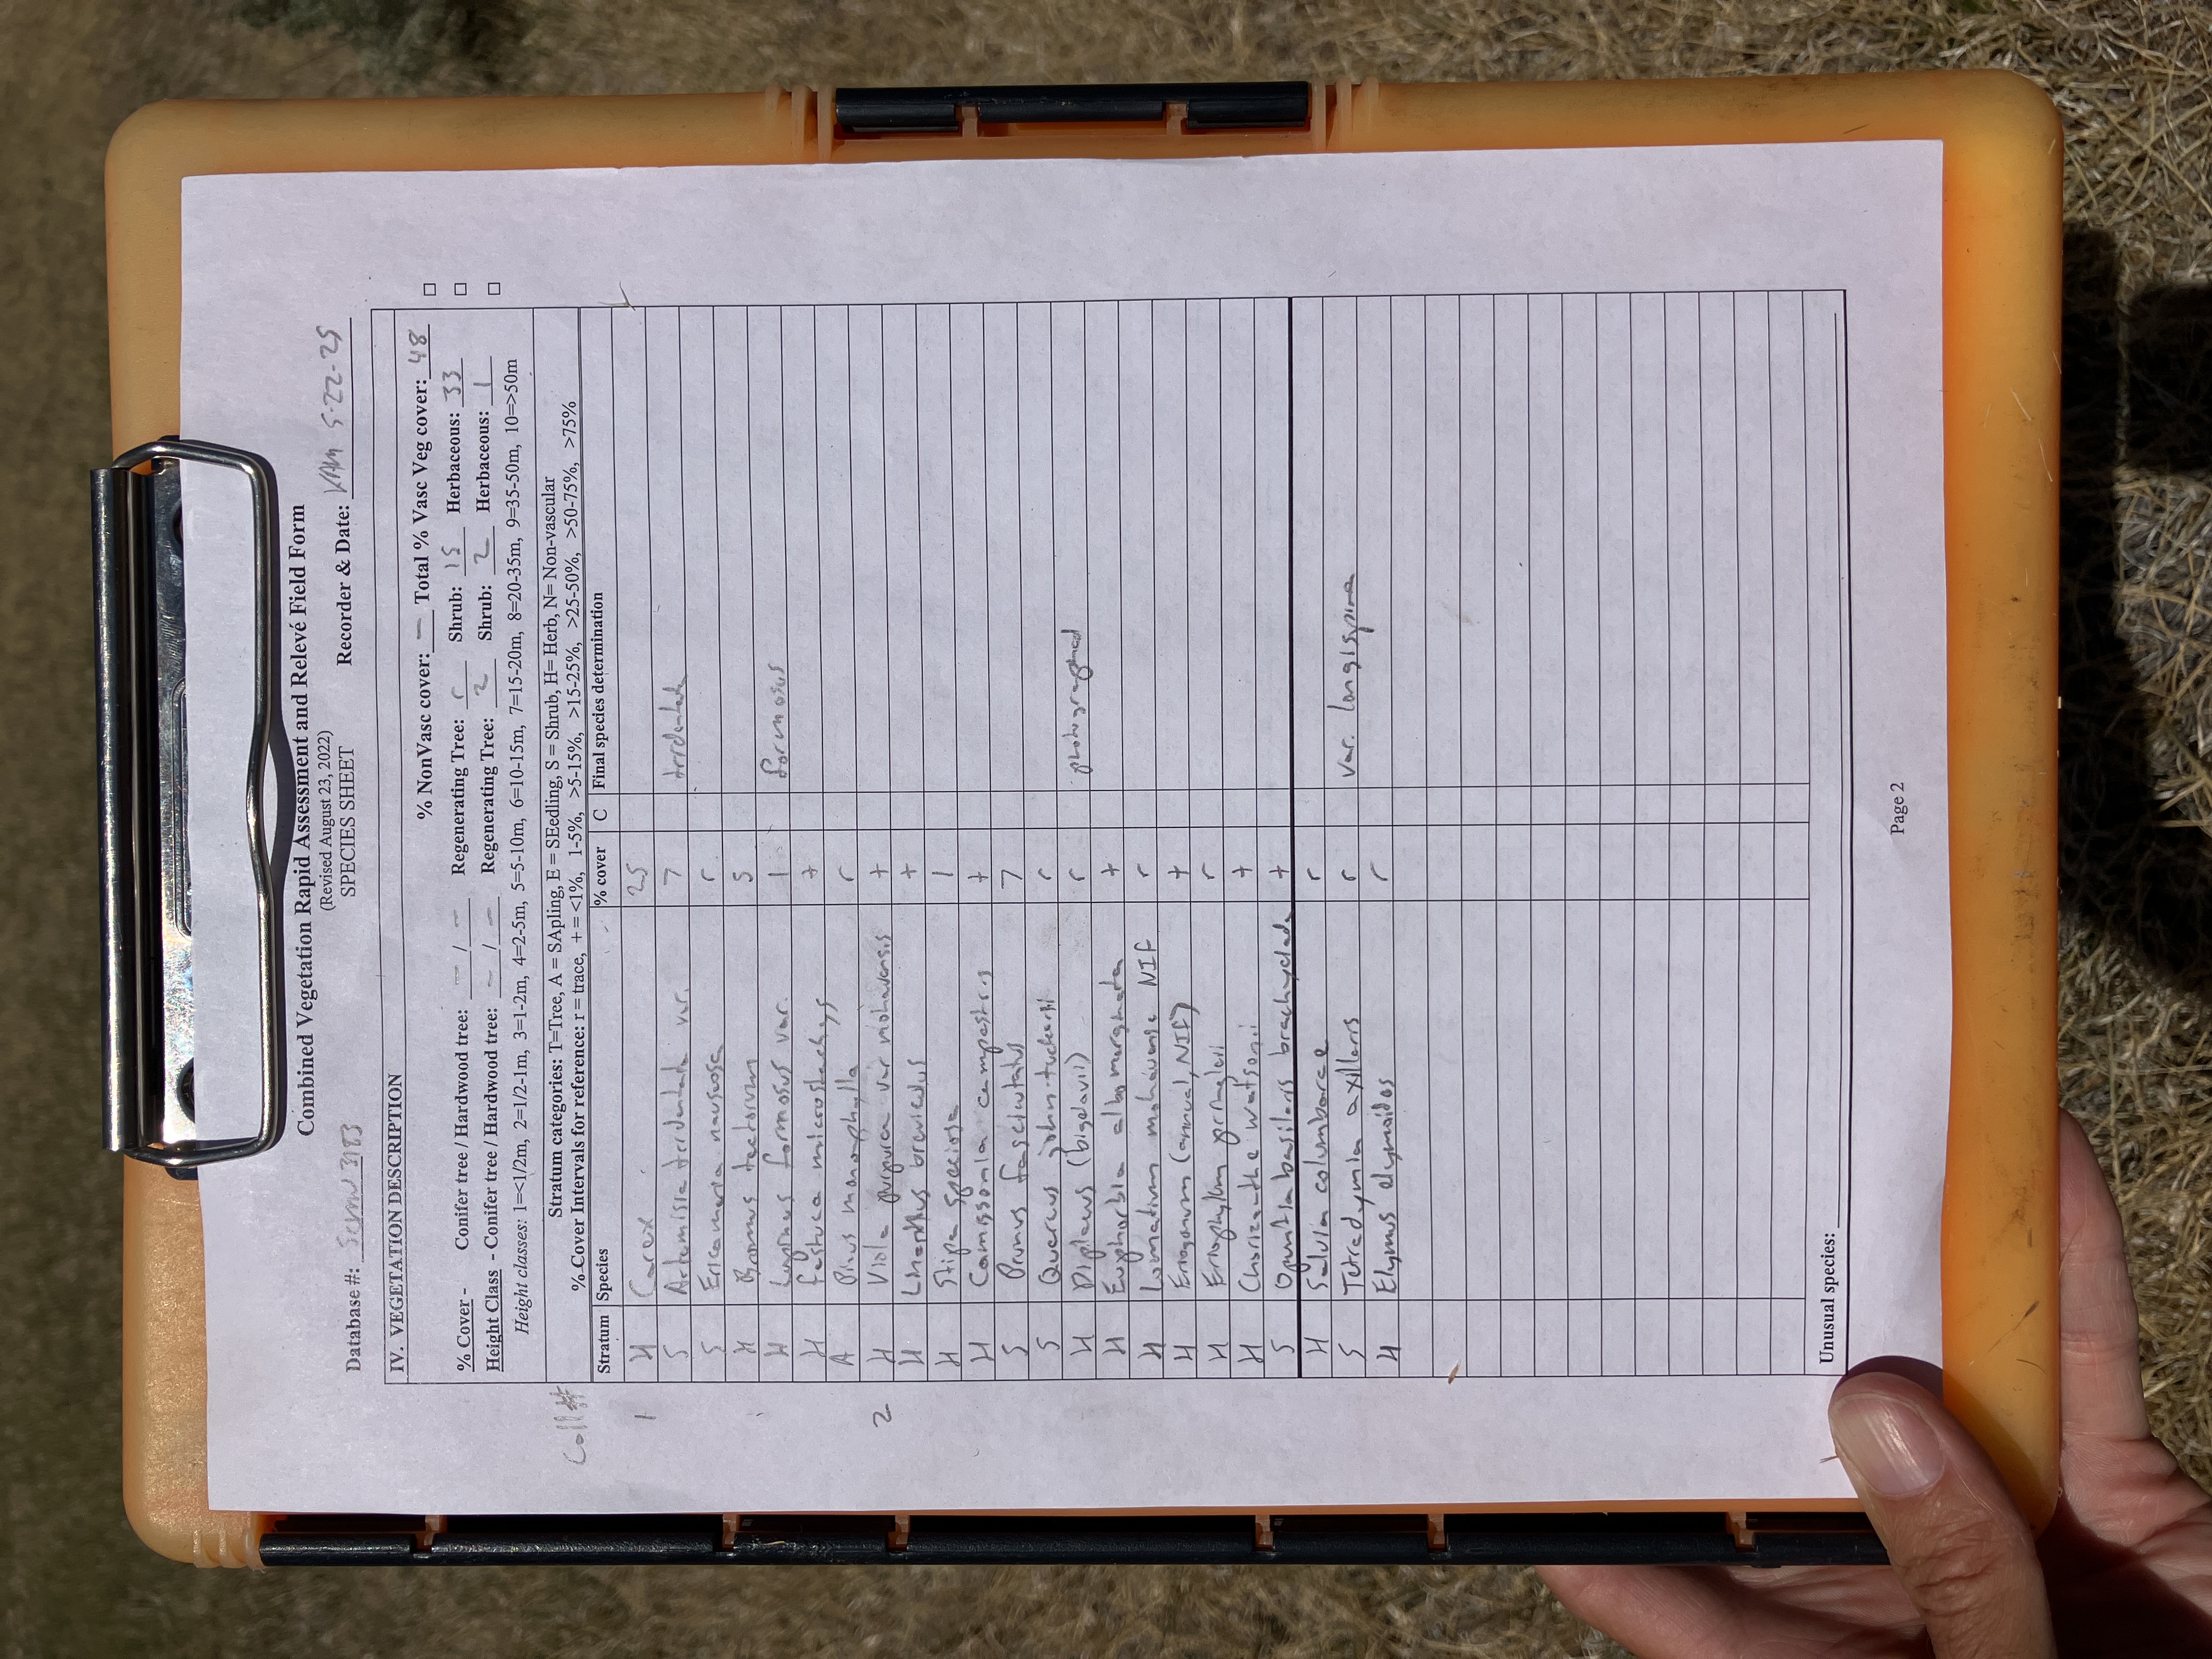 Combined Vegetation Rapid Assessment and Relevé Field Form
(Revised August 23, 2022)
SPECIES SHEET
Database #: Recorder & Date: KAM 5-22-25
IV. VEGETATION DESCRIPTION
% NonVasc cover: — Total % Vasc Veg cover: 48 □
% Cover - Conifer tree / Hardwood tree: - / - Regenerating Tree: r Shrub: 15 Herbaceous: 33 □
Height Class - Conifer tree / Hardwood tree: - / - Regenerating Tree: 2 Shrub: 2 Herbaceous: 1 □
Height classes: 1=<1/2m, 2=1/2-1m, 3=1-2m, 4=2-5m, 5=5-10m, 6=10-15m, 7=15-20m, 8=20-35m, 9=35-50m, 10=>50m
Stratum categories: T=Tree, A = SApling, E = SEedling, S = Shrub, H= Herb, N= Non-vascular
% Cover Intervals for reference: r = trace, + = <1%, 1-5%, >5-15%, >15-25%, >25-50%, >50-75%, >75%
Coll #
Stratum Species % cover C Final species determination
1 H Carex 25
S Artemisia tridentata var. 7 tridentata
S Ericameria nauseosa r
H Bromus tectorum 5
H Lupinus formosus var. 1 formosus
H Festuca microstachys +
A Pinus monophylla r
2 H Viola purpurea var mohavensis +
H Linanthus breviculus +
H Stipa speciosa 1
H Camissonia campestris +
S Prunus fasciculata 7
S Quercus john-tuckeri r
H Diplacus (bigelovii) r photographed
H Euphorbia albomarginata +
H Lomatium mohavense NIF r
H Eriogonum (annual, NIF) +
H Eriophyllum pringlei r
H Chorizanthe watsonii +
S Opuntia basilaris brachyclada +
H Salvia columbarae r
S Tetradymia axillaris r var. longispina
H Elymus elymoides r
Unusual species:
Page 2